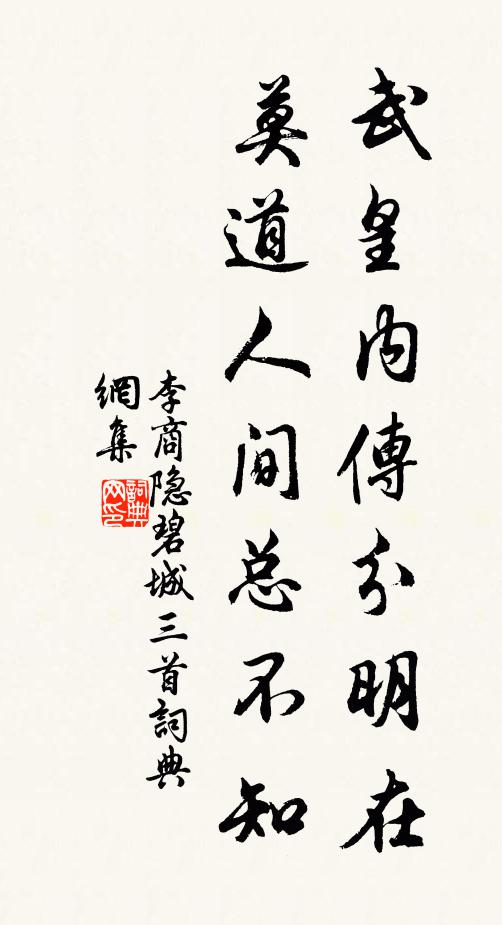 武皇内傳分明在
莫道人间总不知
李商隐碧城三首詞典
網集
詞典
网印